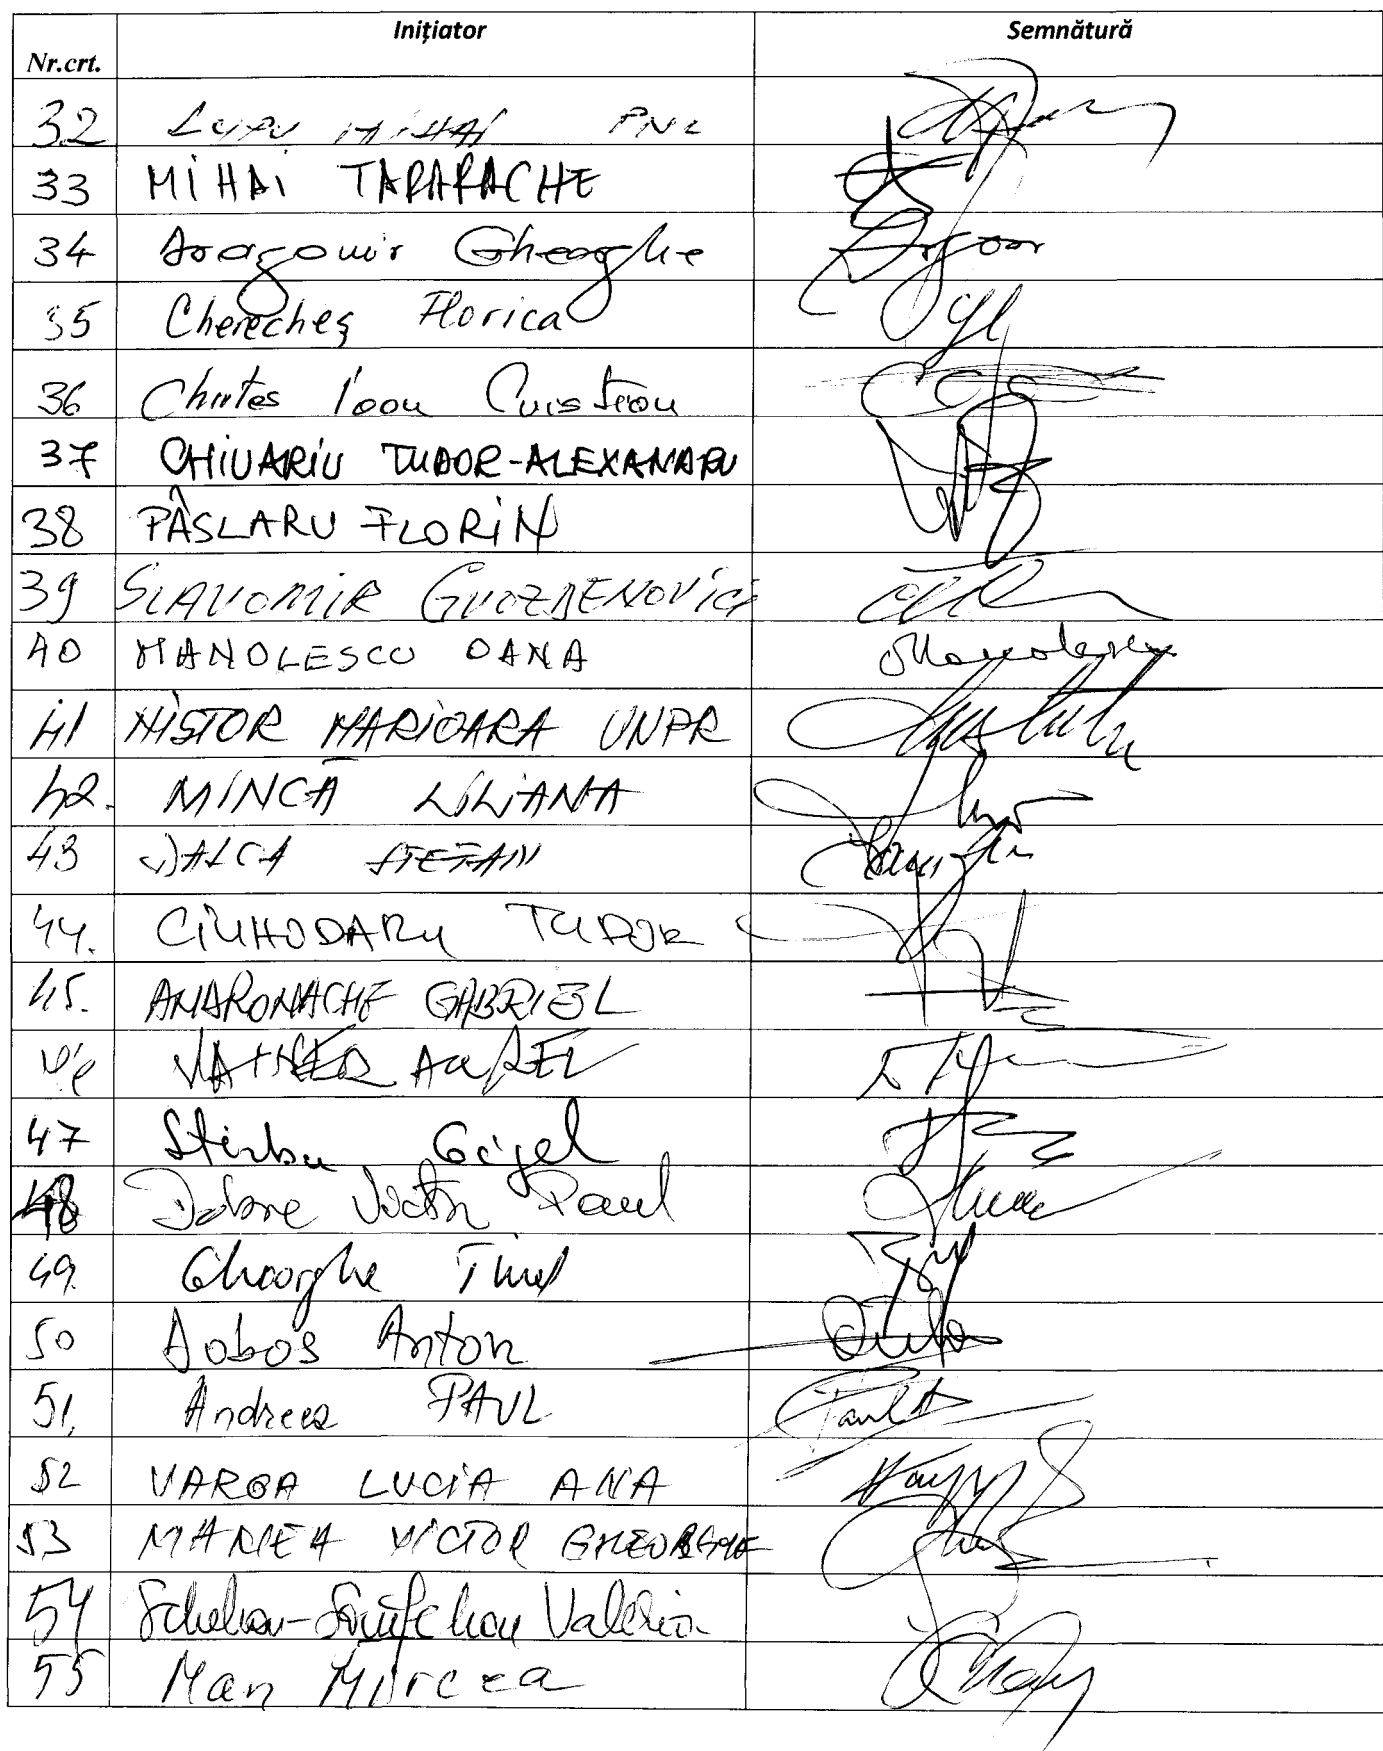 Inițiator Semnătură
Nr.crt.
32 LUPU MIHAI PNL
33 MIHAI TARARACHE
34 Dragomir Gheorghe
35 Cherecheș Florica
36 Ioan
37 CHIUARIU TUDOR-ALEXANDRU
38 PÂSLARU FLORIN
39 SLAVOMIR GVOZDENOVICI
40 MANOLESCU OANA Manolescu
41 NISTOR MARIOARA UNPR
42. MINCĂ LILIANA
43 DALCA STEFAN
44. CIUHODARU TUDOR
45. ANDRONACHE GABRIEL
46 VAINER AUREL
47 Stirbu Gigel
48 Dobre Victor Paul
49. Gheorghe
50 Dobos Anton
51. Andreea PAUL Paul A
52 VARGA LUCIA ANA
53 MANEA VICTOR GHEORGHE
54 Schelean-Somfelean Valeria
55 Man Mircea